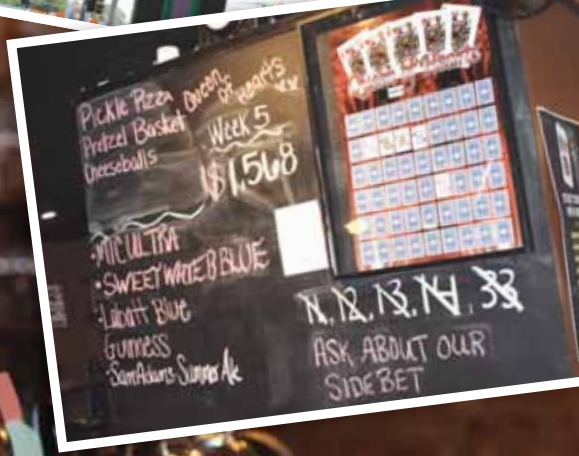 Pickle Pizza
Pretzel Basket
Cheeseballs
Queen
of Hearts
Week 5
$1,568
•MIC ULTRA
•SWEETWATER BLUE
•Labatt Blue
Guinness
•Sam Adams Summer Ale
11, 12, 13, 14, 33
ASK ABOUT OUR
SIDE BET